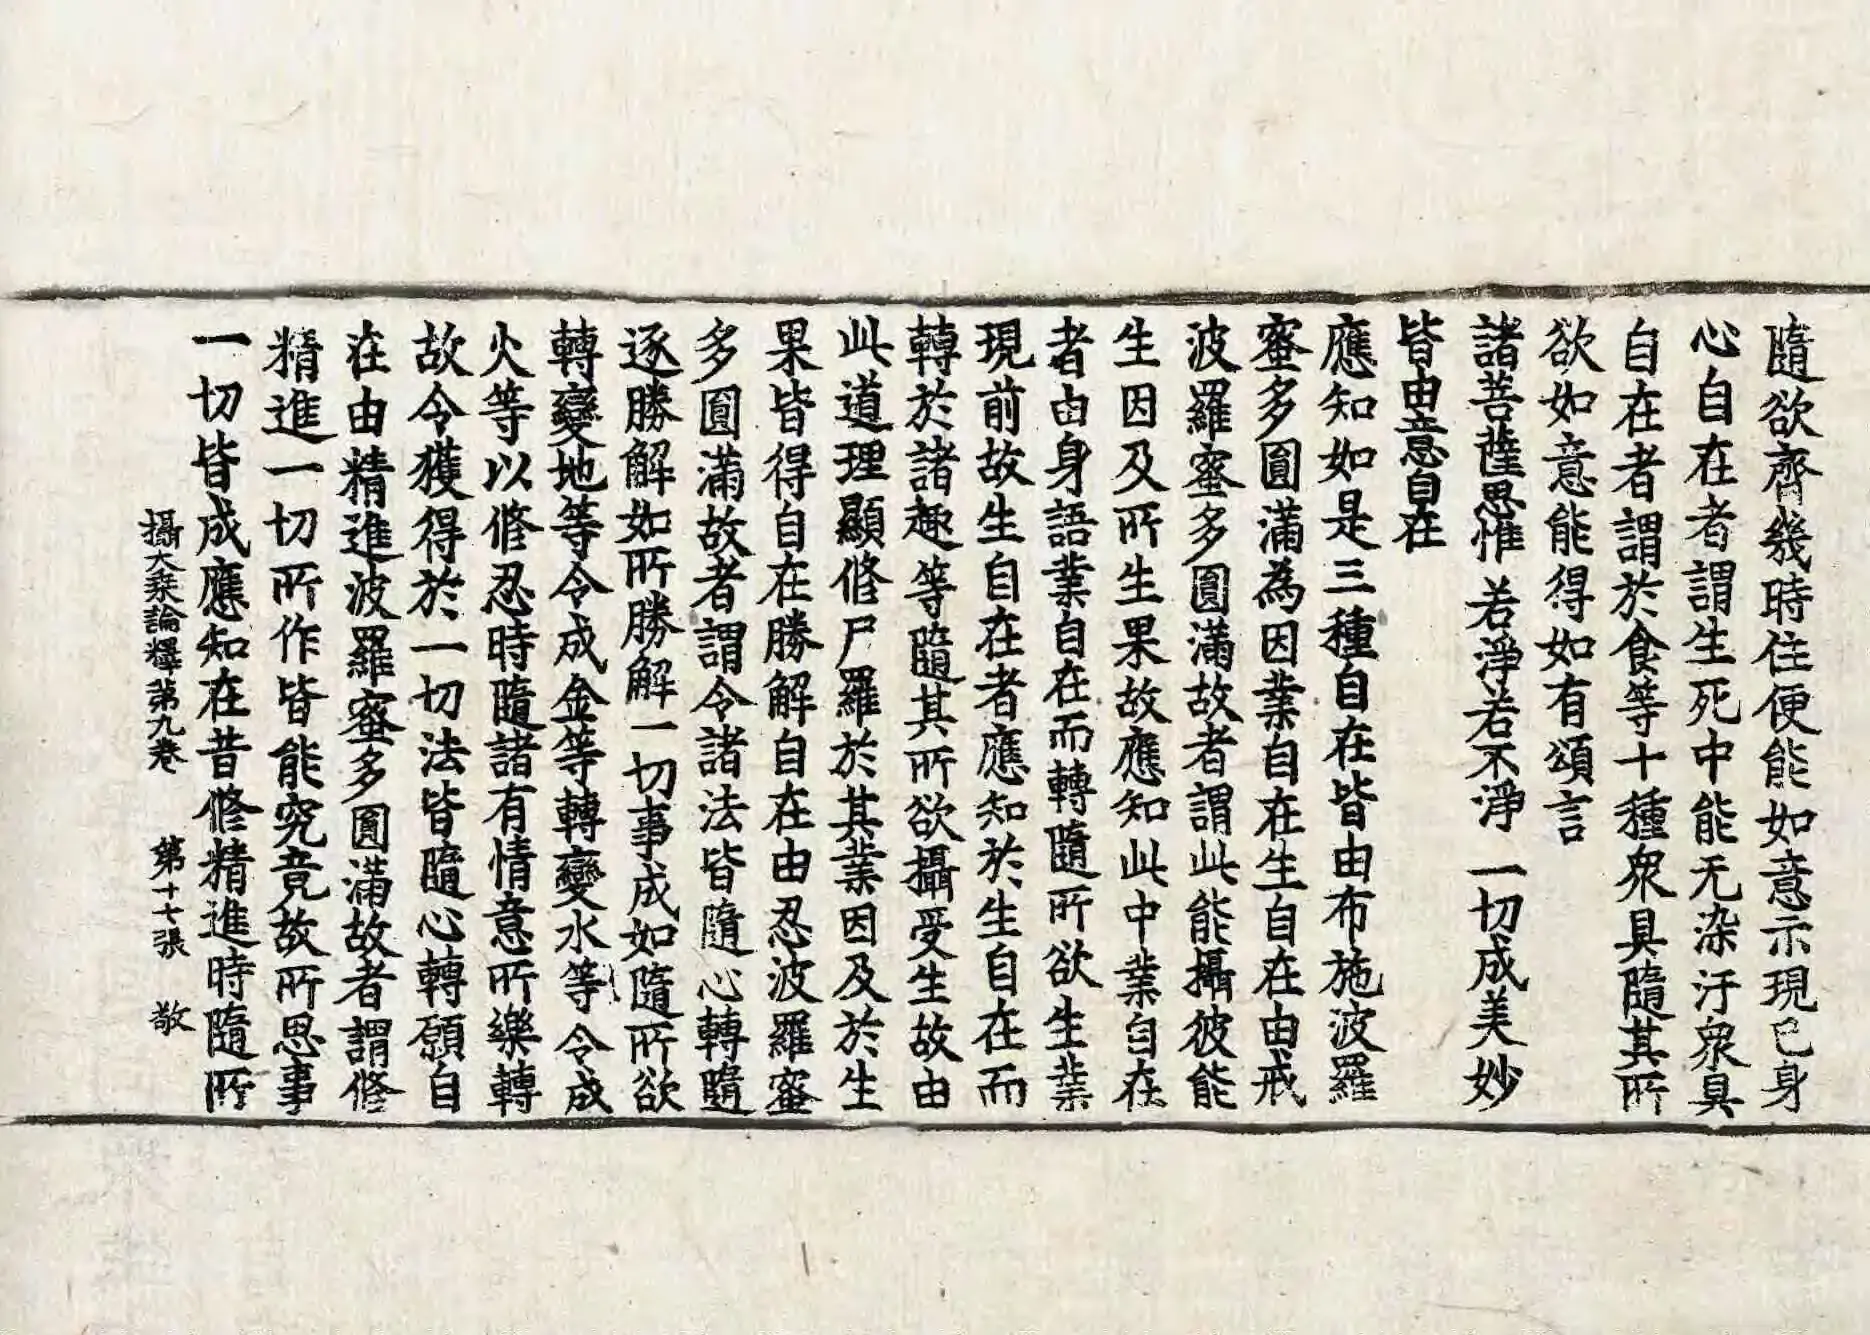 隨欲齊幾時住便能如意示現己身
心自在者謂生死中能无染汙衆具
自在者謂於食等十種衆具隨其所
欲如意能得如有頌言
諸菩薩思惟 若淨若不淨 一切成美妙
皆由意自在
應知如是三種自在皆由布施波羅
蜜多圓滿為因業自在生自在由戒
波羅蜜多圓滿故者謂此能攝彼能
生因及所生果故應知此中業自在
者由身語業自在而轉隨所欲生業
現前故生自在者應知於生自在而
轉於諸趣等隨其所欲攝受生故由
此道理顯修尸羅於其業因及於生
果皆得自在勝解自在由忍波羅蜜
多圓滿故者謂令諸法皆隨心轉隨
逐勝解如所勝解一切事成如隨所欲
轉變地等令成金等轉變水等令成
火等以修忍時隨諸有情意所樂轉
故今獲得於一切法皆隨心轉願自
在由精進波羅蜜多圓滿故者謂修
精進一切所作皆能究竟故所思事
一切皆成應知在昔修精進時隨所
攝大乘論釋第九卷 第十七張 敬